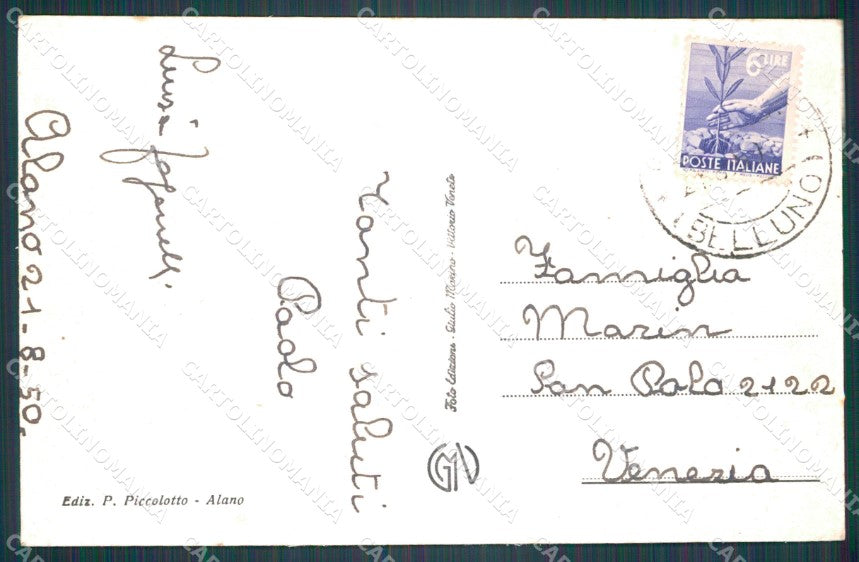 Alano 21-8-50.
Luisa
Tanti saluti
Paolo
Ediz. P. Piccolotto - Alano
Foto Edizione - Giulio Marino - Vittorio Veneto
6 LIRE
POSTE ITALIANE
(BELLUNO)
Famiglia
Marin
San Polo 2122
Venezia
CARTOLINOMANIA